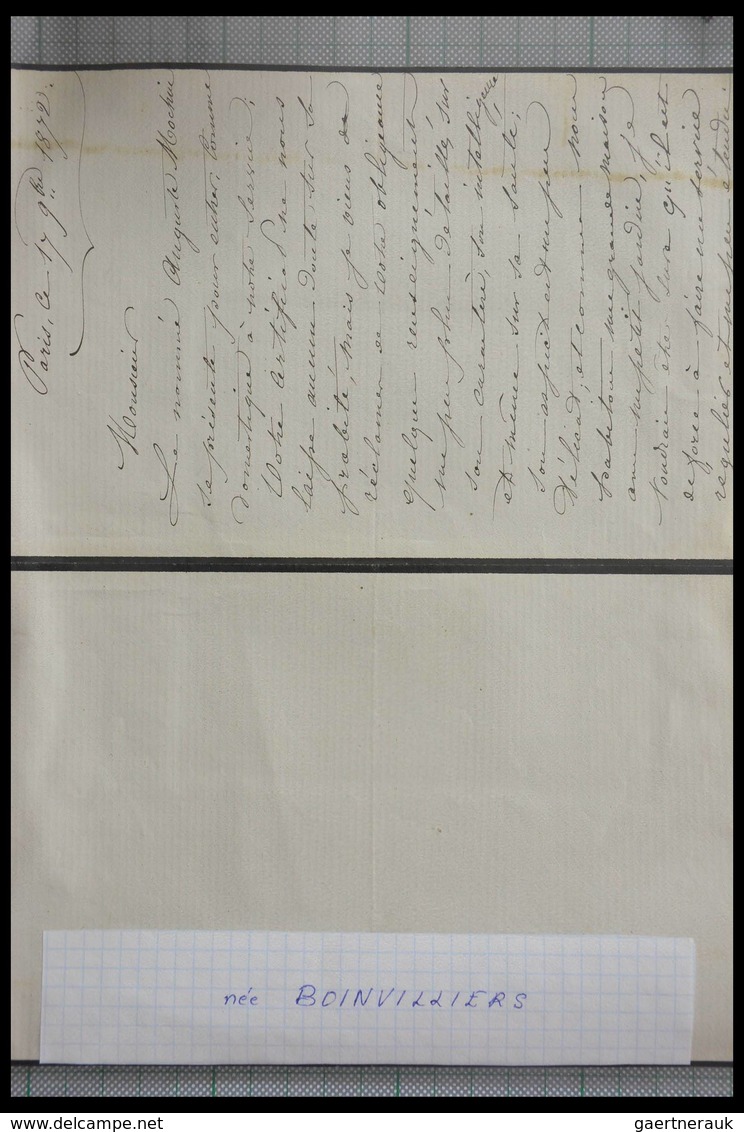 Paris, ce 17 9bre 1872.
Monsieur
Le nommé Auguste Mochin
se présente pour entrer, comme
domestique à notre service;
Votre certificat ne nous
laisse aucun doute sur sa
probité, mais je viens
réclamer de votre obligeance
quelque renseignement
un peu plus détaillé, sur
son caractère, son intelligence,
et même sur sa santé;
son aspect est un peu
délicat; et comme nous
habitons une grande maison
avec un petit jardin, je
voudrais être sure qu'il est
de force à faire un service
régulier et un peu étendu.
née BOINVILLIERS
gaertnerauk @ delcampe.net